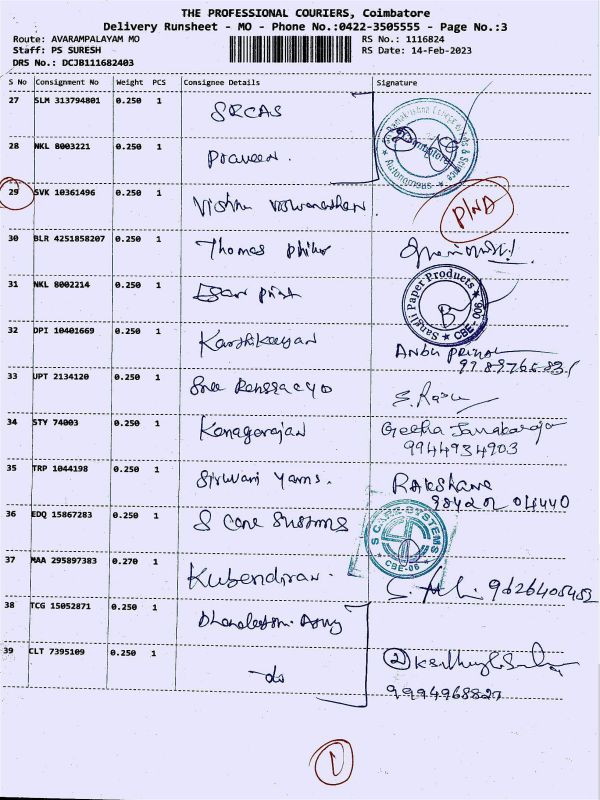 THE PROFESSIONAL COURIERS, Coimbatore
Delivery Runsheet - MO - Phone No.:0422-3505555 - Page No.:3
Route: AVARAMPALAYAM MO RS No.: 1116824
Staff: PS SURESH RS Date: 14-Feb-2023
DRS No.: DCJB111682403
S No Consignment No Weight PCS Consignee Details Signature
27 SLM 313794801 0.250 1 SRCAS
28 NKL 8003221 0.250 1 Praveen.
29 SVK 10361496 0.250 1 Vishnu Viswanathan P/NA
30 BLR 4251858207 0.250 1 Thomas
31 NKL 8002214 0.250 1 Print
Sangli Paper Products
CBE-006
32 DPI 10401669 0.250 1 Karthikayan
33 UPT 2134120 0.250 1 Sree
34 STY 74003 0.250 1 Kanagarajan Geetha
9944934903
35 TRP 1044198 0.250 1 Siruvani Yarns. Rakshana
36 EDQ 15867283 0.250 1 S Care Systems
S CARE SYSTEMS
CBE-06
37 MAA 295897383 0.270 1 Kubendiran. 9626408453
38 TCG 15052871 0.250 1
39 CLT 7395109 0.250 1 -do 2
9994968827
1